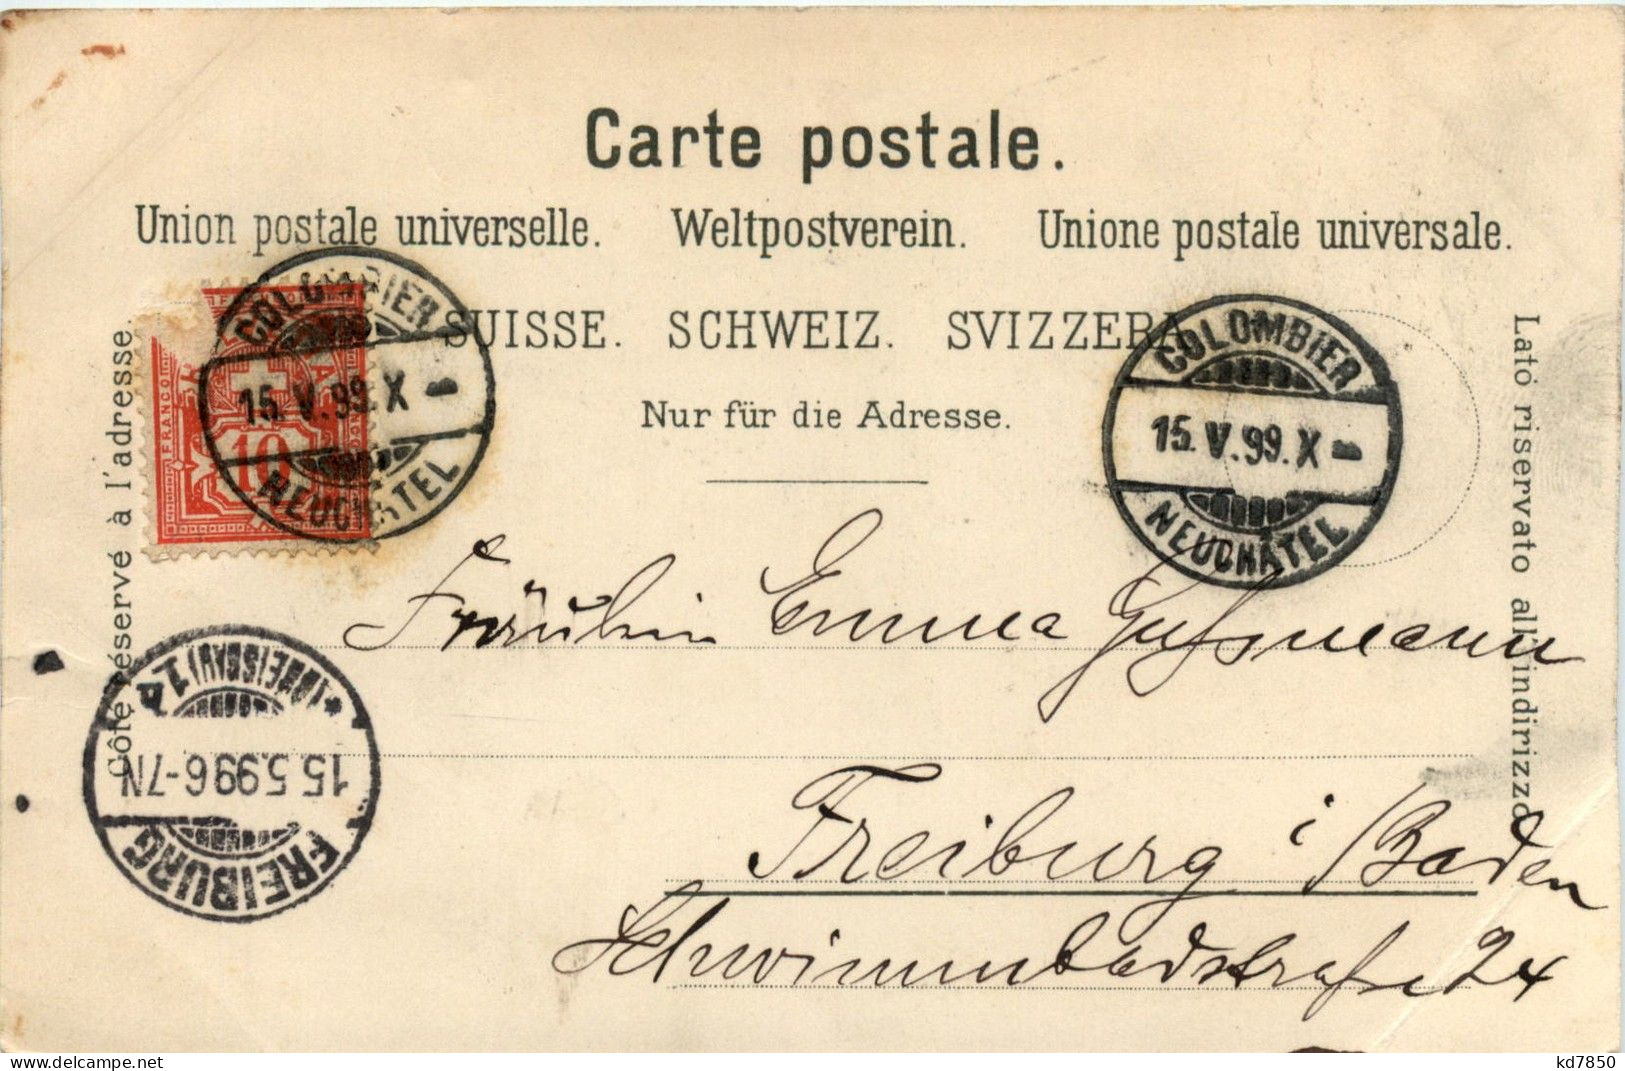 Carte postale.
Union postale universelle. Weltpostverein. Unione postale universale.
SUISSE. SCHWEIZ. SVIZZERA
Nur für die Adresse.
Côté réservé à l'adresse.
Lato riservato all'indirizzo
FRANCO
10
COLOMBIER
15.V.99.X
NEUCHÂTEL
COLOMBIER
15.V.99.X
NEUCHÂTEL
FREIBURG
15.5.99.6-7N
*(BREISGAU) 1
Fräulein Emma
Freiburg i/Baden
Schwimmbadstrasse 24
delcampe.net
kd7850